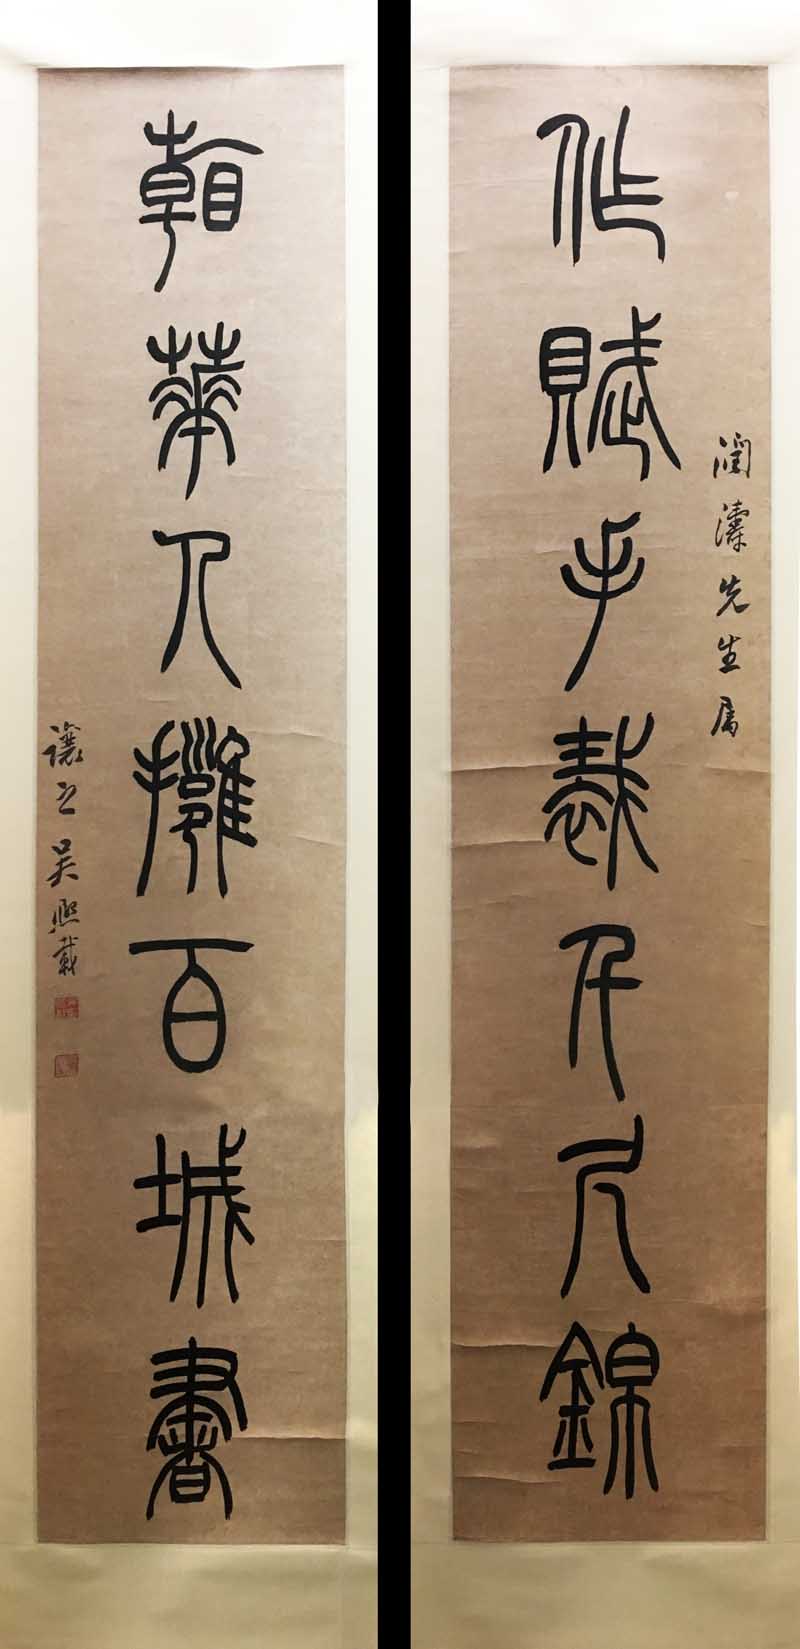 作賦手裁千尺錦
潤濤先生属
朝華人擁百城書
讓之吳熙載